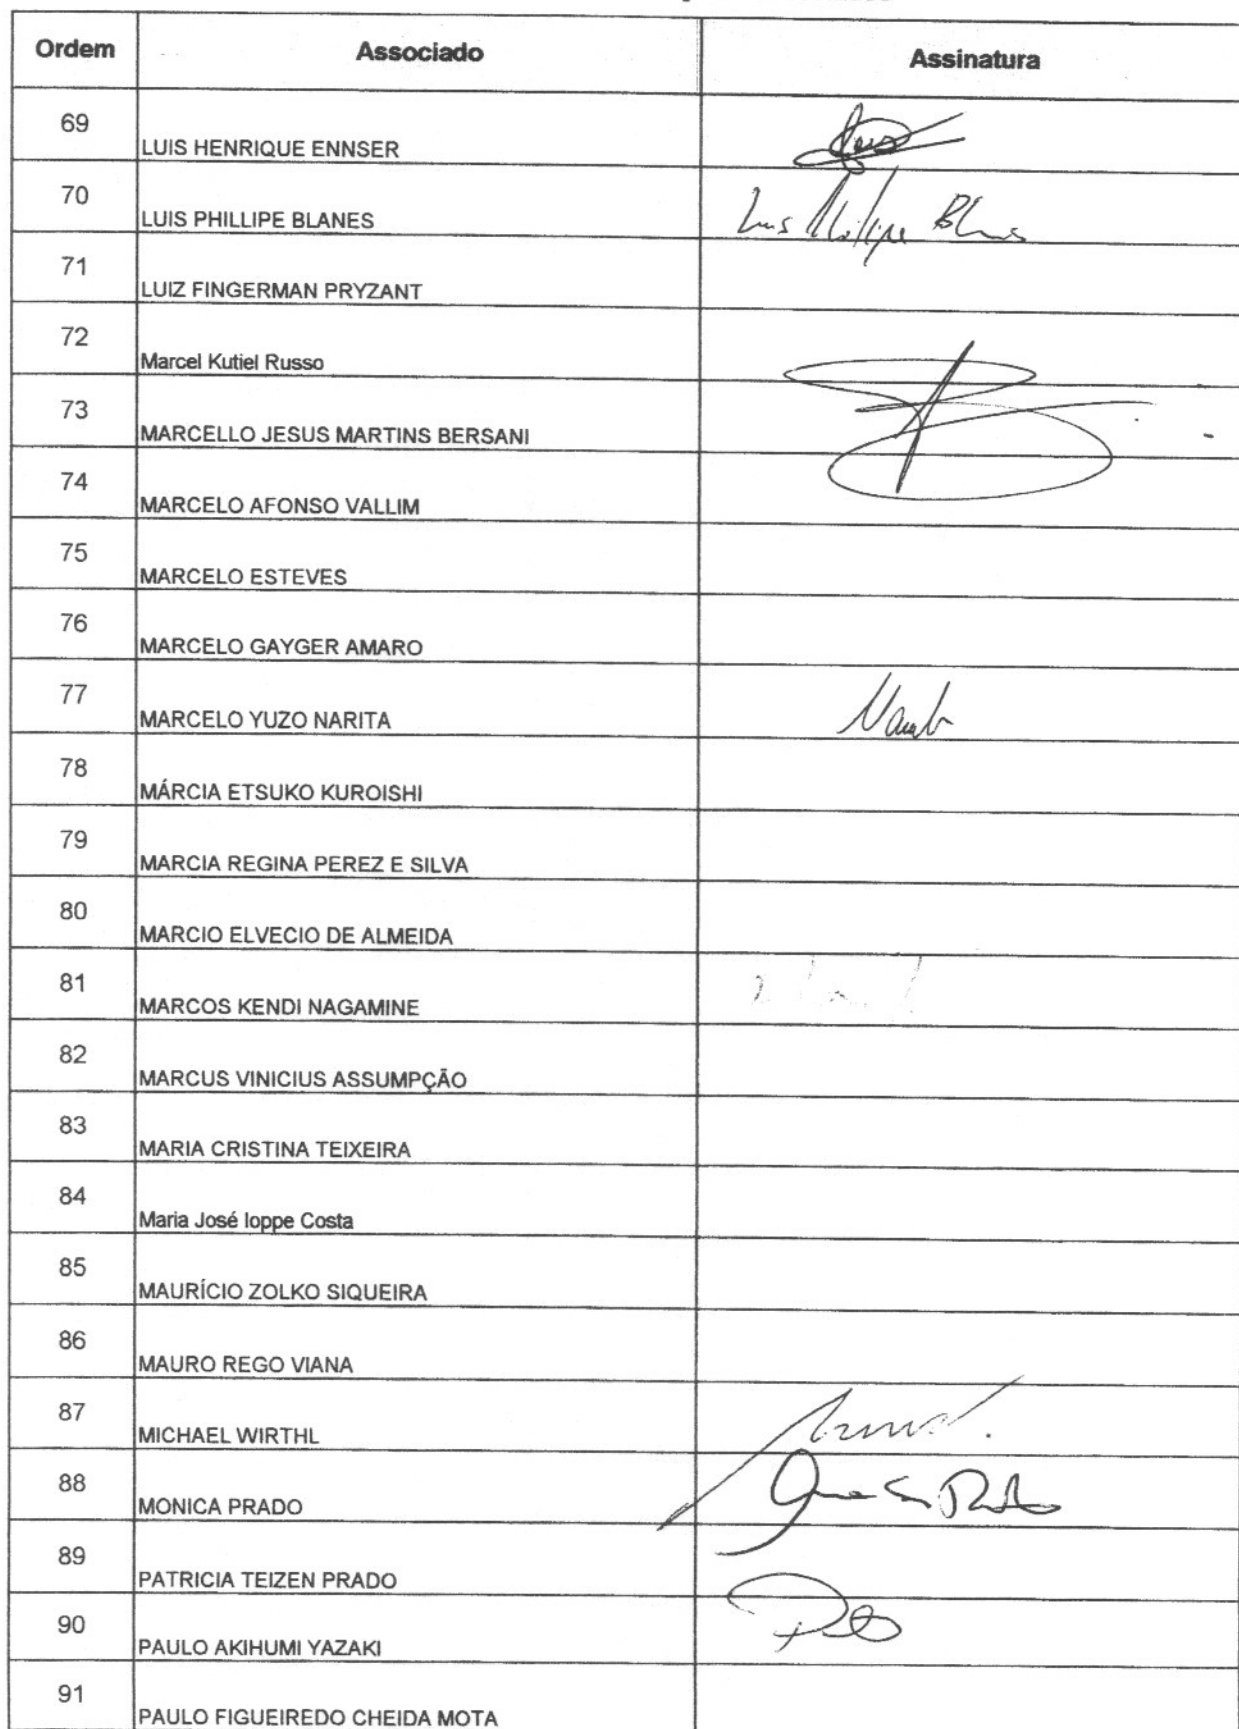 Ordem Associado Assinatura
69 LUIS HENRIQUE ENNSER
70 LUIS PHILLIPE BLANES Luis Phillipe Blanes
71 LUIZ FINGERMAN PRYZANT
72 Marcel Kutiel Russo
73 MARCELLO JESUS MARTINS BERSANI
74 MARCELO AFONSO VALLIM
75 MARCELO ESTEVES
76 MARCELO GAYGER AMARO
77 MARCELO YUZO NARITA
78 MÁRCIA ETSUKO KUROISHI
79 MARCIA REGINA PEREZ E SILVA
80 MARCIO ELVECIO DE ALMEIDA
81 MARCOS KENDI NAGAMINE
82 MARCUS VINICIUS ASSUMPÇÃO
83 MARIA CRISTINA TEIXEIRA
84 Maria José Ioppe Costa
85 MAURÍCIO ZOLKO SIQUEIRA
86 MAURO REGO VIANA
87 MICHAEL WIRTHL
88 MONICA PRADO
89 PATRICIA TEIZEN PRADO
90 PAULO AKIHUMI YAZAKI
91 PAULO FIGUEIREDO CHEIDA MOTA